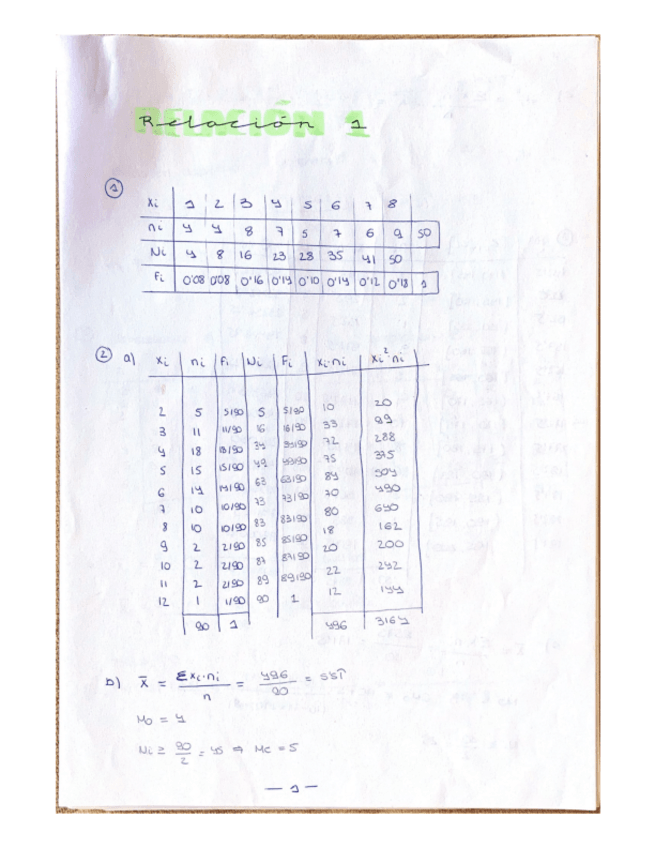 Relación 1
①
xi 1 2 3 4 5 6 7 8
ni 4 4 8 7 5 7 6 9 50
Ni 4 8 16 23 28 35 41 50
fi 0'08 0'08 0'16 0'14 0'10 0'14 0'12 0'18 1
② a) xi ni fi Ni Fi xi·ni xi²ni
2 5 5/90 5 5/90 10 20
3 11 11/90 16 16/90 33 99
4 18 18/90 34 34/90 72 288
5 15 15/90 49 49/90 75 375
6 14 14/90 63 63/90 84 504
7 10 10/90 73 73/90 70 490
8 10 10/90 83 83/90 80 640
9 2 2/90 85 85/90 18 162
10 2 2/90 87 87/90 20 200
11 2 2/90 89 89/90 22 242
12 1 1/90 90 1 12 144
90 1 496 3164
b) x̄ = Σxi·ni / n = 496 / 90 = 5'51̂
Mo = 4
Ni ≥ 90/2 = 45 ⇒ Me = 5
— 1 —